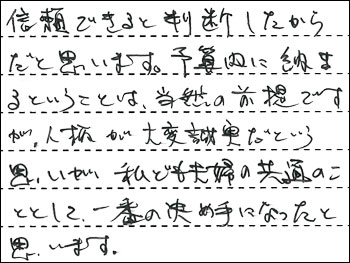 信頼できると判断したから
だと思います。予算内に納ま
るということは、当然の前提です
が、人柄が大変誠実だという
思いが私ども夫婦の共通のこ
ととして、一番の決め手になったと
思います。